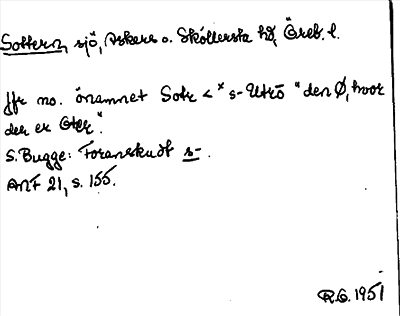 Sottern, sjö, Askers o. Sköllersta hd, Öreb. l.
Jfr no. önamnet Sotr < * s-Utrö "den Ø, hvor
der er Oter".
S. Bugge: Foranskudt s-.
ANF 21, s. 155.
R.G. 1951